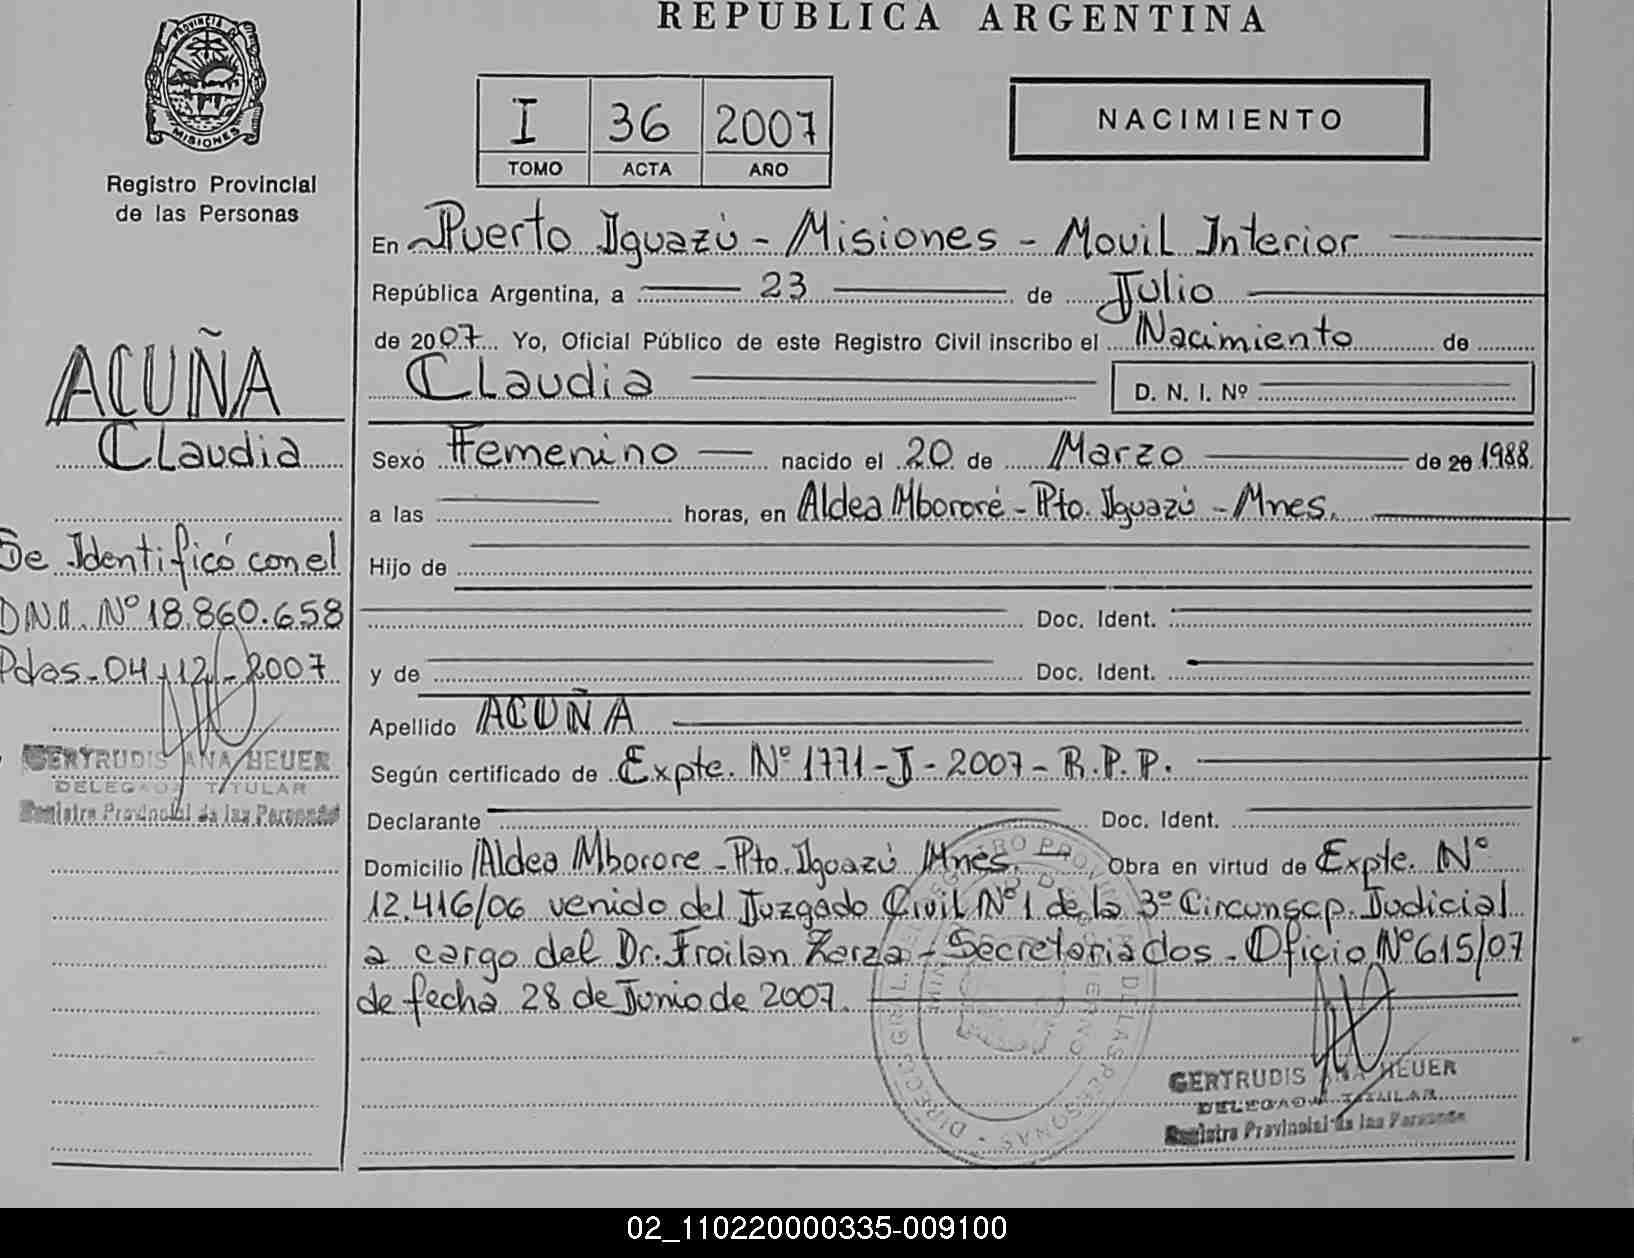 REPUBLICA ARGENTINA
PROVINCIA DE
MISIONES
Registro Provincial
de las Personas
I 36 2007
TOMO ACTA AÑO
NACIMIENTO
En Puerto Iguazú - Misiones - Movil Interior
República Argentina, a 23 de Julio
de 2007 Yo, Oficial Público de este Registro Civil inscribo el Nacimiento de
Claudia D. N. I. Nº
Sexo Femenino nacido el 20 de Marzo de 20 1988
a las horas, en Aldea Mbororé - Pto. Iguazú - Mnes.
Hijo de
Doc. Ident.
y de Doc. Ident.
Apellido ACUÑA
Según certificado de Expte. Nº 1771-J-2007-R.P.P.
Declarante Doc. Ident.
Domicilio Aldea Mborore - Pto. Iguazú Mnes. Obra en virtud de Expte. Nº
12.416/06 venido del Juzgado Civil Nº1 de la 3º Circunscp. Judicial
a cargo del Dr. Froilan Zarza - Secretaria dos - Oficio Nº 615/07
de fecha 28 de Junio de 2007.
GERTRUDIS ANA HEUER
DELEGADA TITULAR
Registro Provincial de las Personas
ACUÑA
Claudia
Se Identificó con el
D.N.I. Nº 18.860.658
Pdas - 04-12-2007
GERTRUDIS ANA HEUER
DELEGADA TITULAR
Registro Provincial de las Personas
02_110220000335-009100